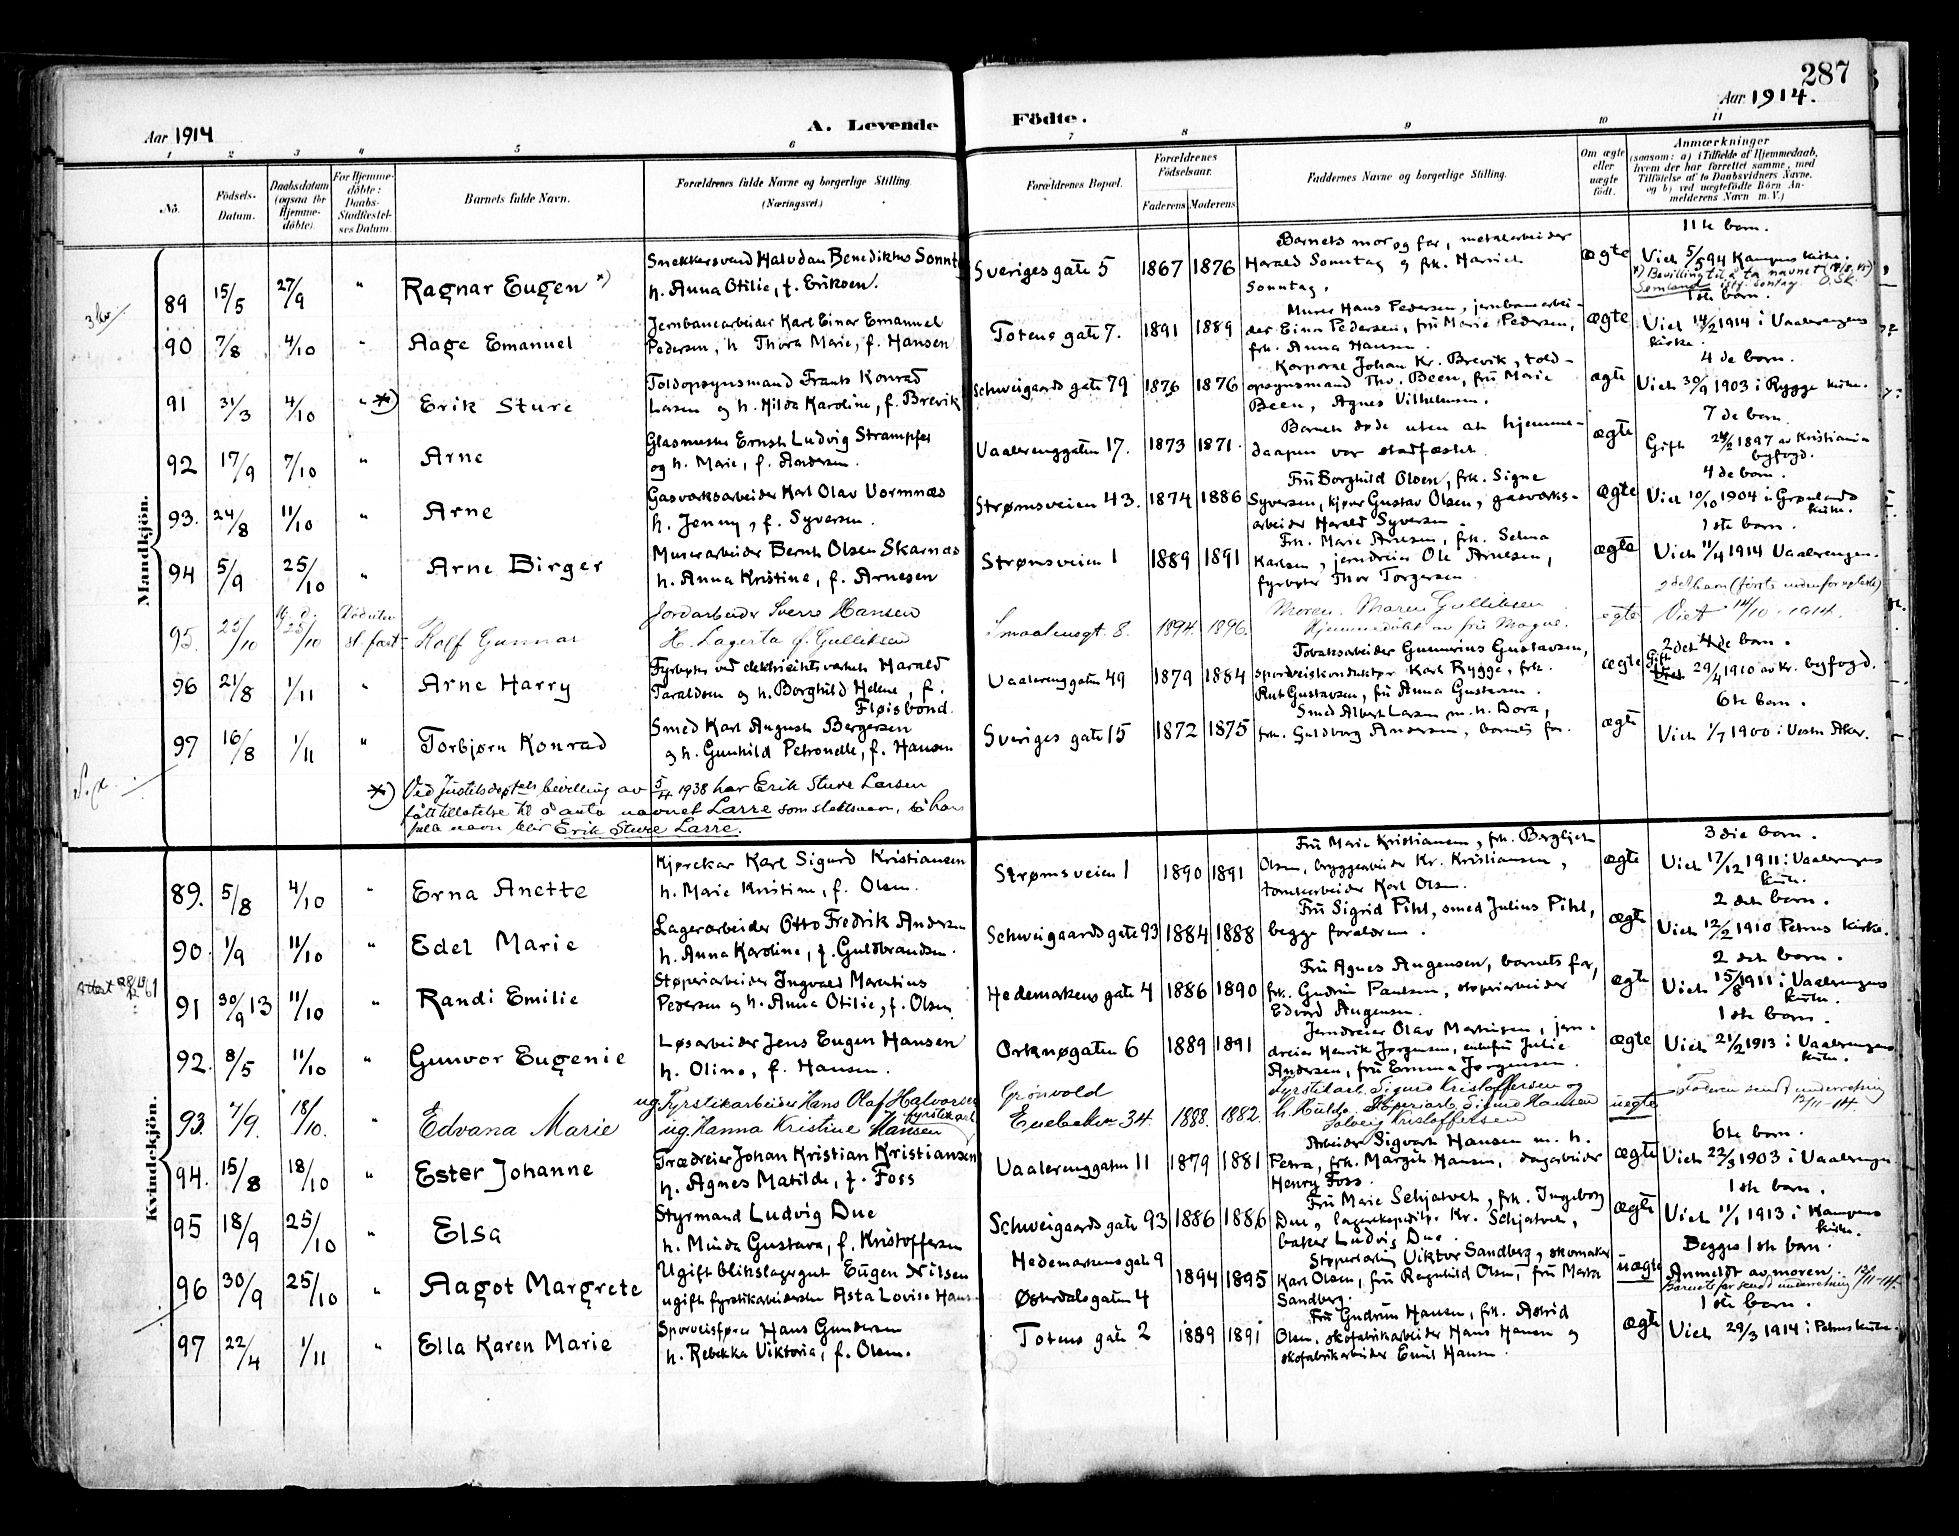 287
Aar 1914
A. Levende Födte.
Aar 1914.
1 2 3 4 5 6 7 8 9 10 11
No.
Födsels-Datum.
Daabsdatum (ogsaa for Hjemme-döbte).
For Hjemme-döbte: Daabs-Stadfæstel-ses Datum.
Barnets fulde Navn.
Forældrenes fulde Navne og borgerlige Stilling. (Næringsvei.)
Forældrenes Bopæl.
Forældrenes Födselsaar.
Faderens Moderens
Faddernes Navne og borgerlige Stilling.
Om ægte eller uægte födt.
Anmærkninger
(saasom: a) i Tilfælde af Hjemmedaab, hvem der har forrettet samme, med Tilföielse af to Daabsvidners Navne, og b) ved uægtefödte Börn Anmelderens Navn m. V.)
Mandkjön.
89 15/5 27/9 " Ragnar Eugen *)
Snekkersvend Halvdan Benediktus Sonnt
h. Anna Otilie, f. Eriksen.
Sveriges gate 5 1867 1876
Barnets mor og far, metalarbeider
Harald Sonntag og frk. Harriet
Sonntag.
ægte
11te barn.
Viet 5/5 94 Kampens kirke.
*) Bevilling til å ta navnet
Sømland istf. Sontag. O.Sk.
90 7/8 4/10 " Aage Emanuel
Jernbanearbeider Karl Einar Emanuel
Pedersen, h. Thora Marie, f. Hansen
Totens gate 7. 1891 1889
Murer Hans Pedersen, jernbanearbei-
der Einar Pedersen, fru Marie Pedersen,
frk. Anna Hansen.
ægte
1ste barn.
Viet 14/2 1914 i Vaalerengens
kirke.
91 31/3 4/10 " *) Erik Sture
Toldopsynsmand Frants Konrad
Larsen og h. Hilda Karoline, f. Brevik
Schweigaards gate 79 1876 1876
Korporal Johan Kr. Brevik, told-
opsynsmand Thv. Been, fru Marie
Been, Agnes Vilhelmsen.
ægte
4de barn.
Viet 30/9 1903 i Rygge kirke.
92 17/9 7/10 " Arne
Glasmester Ernst Ludvig Strampfer
og h. Marie, f. Andersen.
Vaalerenggaten 17. 1873 1871.
Barnet døde uten at hjemme-
daapen var stadfæstet.
ægte
7de barn.
Gift 24/2 1897 av Kristiania
byfogd.
93. 24/8 11/10 " Arne
Gasverksarbeider Karl Olav Vormnæs
h. Jenny, f. Syversen.
Strømsveien 43. 1874 1886
Fru Borghild Olsen, frk. Signe
Syversen, kjører Gustav Olsen, gasverks-
arbeider Harald Syversen.
ægte
4de barn.
Viet 10/10 1904 i Grønlands
kirke.
94 5/9 25/10 " Arne Birger
Murerarbeider Bernt Olsen Skarnæs
h. Anna Kristine, f. Arnesen
Strømsveien 1 1889 1891
Frk. Marie Arnesen, frk. Selma
Karlsen, jerndreier Ole Arnesen,
fyrbøter Thor Torgersen.
ægte
1ste barn.
Viet 11/4 1914 Vaalerengen.
95. 23/10 Hj. d. 23/10 Död uten st.fæst. Rolf Gunnar
Jordarbeider Sverre Hansen
H. Lagerta f. Gulliksen
Smaalensgt. 8. 1894. 1896.
Moren. Maren Gulliksen
Hjemmedöbt av fru Magne.
ægte
2det barn (første udenfor egteskab)
Viet 14/10 - 1914.
96 21/8 1/11 " Arne Harry
Fyrbøter ved elektricitetsverket Harald
Taraldsen og h. Borghild Helene, f.
Fløisbond.
Vaalerenggaten 49 1879 1884
Tobaksarbeider Gunnerius Gustavsen,
sporveiskonduktør Karl Rygge, frk.
Rut Gustavsen, fru Anna Gustavsen.
ægte
2det 4de barn.
Gift Viet 29/4 1910 av Kr. byfogd.
97 16/8 1/11 " Torbjørn Konrad
Smed Karl August Bergersen
og h. Gunhild Petronelle, f. Hansen
Sveriges gate 15 1872 1875
Smed Albert Larsen m. h. Dora,
frk. Guldborg Andersen, barnets far.
ægte
6te barn.
Viet 1/7 1900 i Vestre Aker.
*) Ved Justisdeptets bevilling av 5/4 1938 har Erik Sture Larsen
fått tillatelse til å anta navnet Larre som slektsnavn, så hans
fulle navn blir Erik Sture Larre.
Kvindekjön.
89. 5/8 4/10 " Erna Anette
Kjørekar Karl Sigurd Kristiansen
h. Marie Kristine, f. Olsen.
Strømsveien 1 1890 1891
Fru Marie Kristiansen, frk. Bergljot
Olsen, bryggearbeider Kr. Kristiansen,
tomtearbeider Karl Olsen.
ægte
3die barn.
Viet 17/12 1911 i Vaalerengens
kirke.
90. 1/9 11/10 " Edel Marie
Lagerarbeider Otto Fredrik Andersen
h. Anna Karoline, f. Guldbrandsen.
Schweigaards gate 93 1884 1888
Fru Sigrid Pihl, smed Julius Pihl,
begge forældrene.
ægte
2det barn.
Viet 12/2 1910 Petrus kirke.
91 30/9 13 11/10 " Randi Emilie
Støperiarbeider Ingvald Marentius
Pedersen og h. Anna Otilie, f. Olsen
Hedemarkens gate 4 1886 1890
Fru Agnes Augensen, barnets far,
frk. Gudrun Paulsen, støperiarbeider
Edvard Augensen.
ægte
2det barn.
Viet 15/8 1911 i Vaalerengens
kirke.
92. 8/5 11/10 " Gunvor Eugenie
Løsarbeider Jens Eugen Hansen
h. Oline, f. Hansen.
Orknøgaten 6 1889 1891
Jerndreier Olav Martinsen, jern-
dreier Henrik Jørgensen, enkefru Julie
Andersen, fru Emma Jørgensen.
ægte
1ste barn.
Viet 21/2 1913 i Vaalerengens
kirke.
93. 7/9. 18/10. " Edvana Marie
ug. Fyrstikarbeider Hans Olaf Halvorsen
ug. Hanna Kristine Hansen fyrstikarb.
Grönvold
Enebakkv. 34. 1888. 1882.
Fyrstikarb. Sigurd Kristoffersen og
h. Hulda. Støperiarb. Sigurd Hansen
Solveig Kristoffersen
uegte
Faderen sendt underretning
12/11-14.
94. 15/8 18/10 " Ester Johanne
Trædreier Johan Kristian Kristiansen
h. Agnes Matilde, f. Foss
Vaalerenggaten 11 1879 1881
Arbeider Sigvart Hansen m. h.
Petra, frk. Margit Hansen, dagarbeider
Henry Foss.
ægte
6te barn.
Viet 22/3 1903 i Vaalerengen
95 18/9 25/10 " Elsa
Styrmand Ludvig Due
h. Minda Gustava, f. Kristoffersen
Schweigaards gate 93 1886 1886
Fru Marie Schjatvet, frk. Ingeborg
Due, lagerexpeditr. Kr. Schjatvet,
baker Ludvig Due.
ægte
1ste barn.
Viet 11/1 1913 i Kampens
kirke.
96 30/9 25/10 " Aagot Margrete
Ugift blikslagergut Eugen Nilsen
ugift fyrstikarbeiderske Asta Lovise Hans-
Hedemarkens gate 9
Østerdalsgaten 4
1894 1895
Støperiarb. Viktor Sandberg, skomaker
Karl Olsen, fru Ragnhild Olsen, fru Marta
Sandberg.
uægte
Begges 1ste barn.
Anmeldt av moren.
Barnefar sendt underretning 12/11-14.
97 22/4 1/11 " Ella Karen Marie
Sporveisfører Hans Gundersen
h. Rebekka Viktoria, f. Olsen.
Totens gate 2 1889 1891
Fru Gudrun Hansen, frk. Astrid
Olsen, skofabrikarbeider Hans Hansen og
skofabrikarbeider Emil Hansen.
ægte
1ste barn.
Viet 29/3 1914 i Petrus kirke.